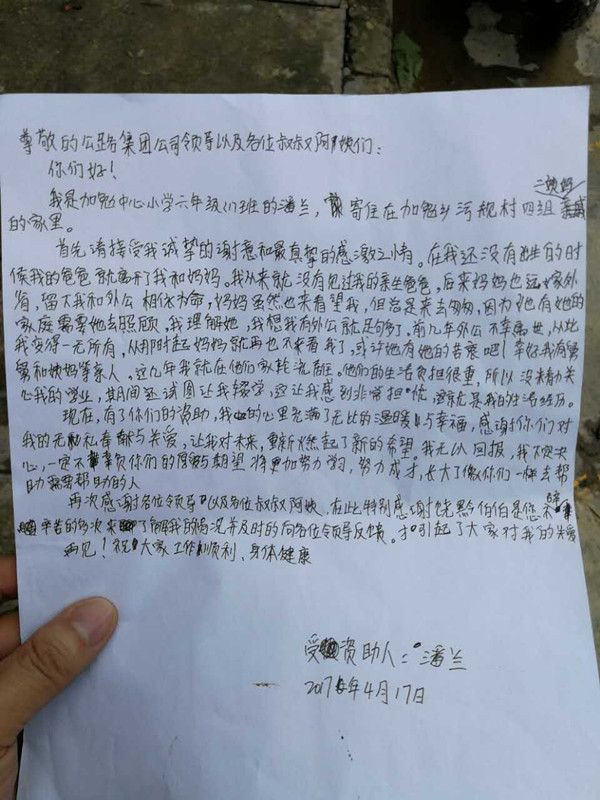 尊敬的公路集团公司领导以及各位叔叔阿姨们：
你们好！
二姨妈
我是加勉中心小学六年级(1)班的潘兰，寄住在加勉乡污规村四组
的家里。
首先请接受我诚挚的谢意和最真挚的感激之情。在我还没有出生的时
候我的爸爸就离开了我和妈妈。我从来就没有见过我的亲生爸爸，后来妈妈也远嫁外
省，留下我和外公相依为命，妈妈虽然也来看望我，但总是来去匆匆，因为她有她的
家庭需要她去照顾，我理解她，我想我有外公就足够了，前几年外公不幸离世，从此
我变得一无所有，从那时起妈妈就再也不来看我了，或许她有她的苦衷吧！幸好我有舅
舅和姨妈等亲人，这几年我就在他们家轮流居住。他们的生活负担很重，所以没来关
心我的学业，期间还试图让我辍学，这让我感到非常担忧，这就是我的生活经历。
现在，有了你们的资助，我的心里充满了无比的温暖与幸福，感谢你们对
我的无私奉献与关爱，让我对未来，重新燃起了新的希望。我无以回报，我下定决
心，一定不辜负你们的厚与期望将更加努力学习，努力成才，长大了像你们一样去帮
助需要帮助的人
再次感谢各位领导以及各位叔叔阿姨，在此特别感谢饶黔伯伯是您不辞
辛苦的多次来了解我的情况并及时的向各位领导反馈。才引起了大家对我的关爱
再见！祝大家工作顺利、身体健康
受资助人：潘兰
2017年4月17日